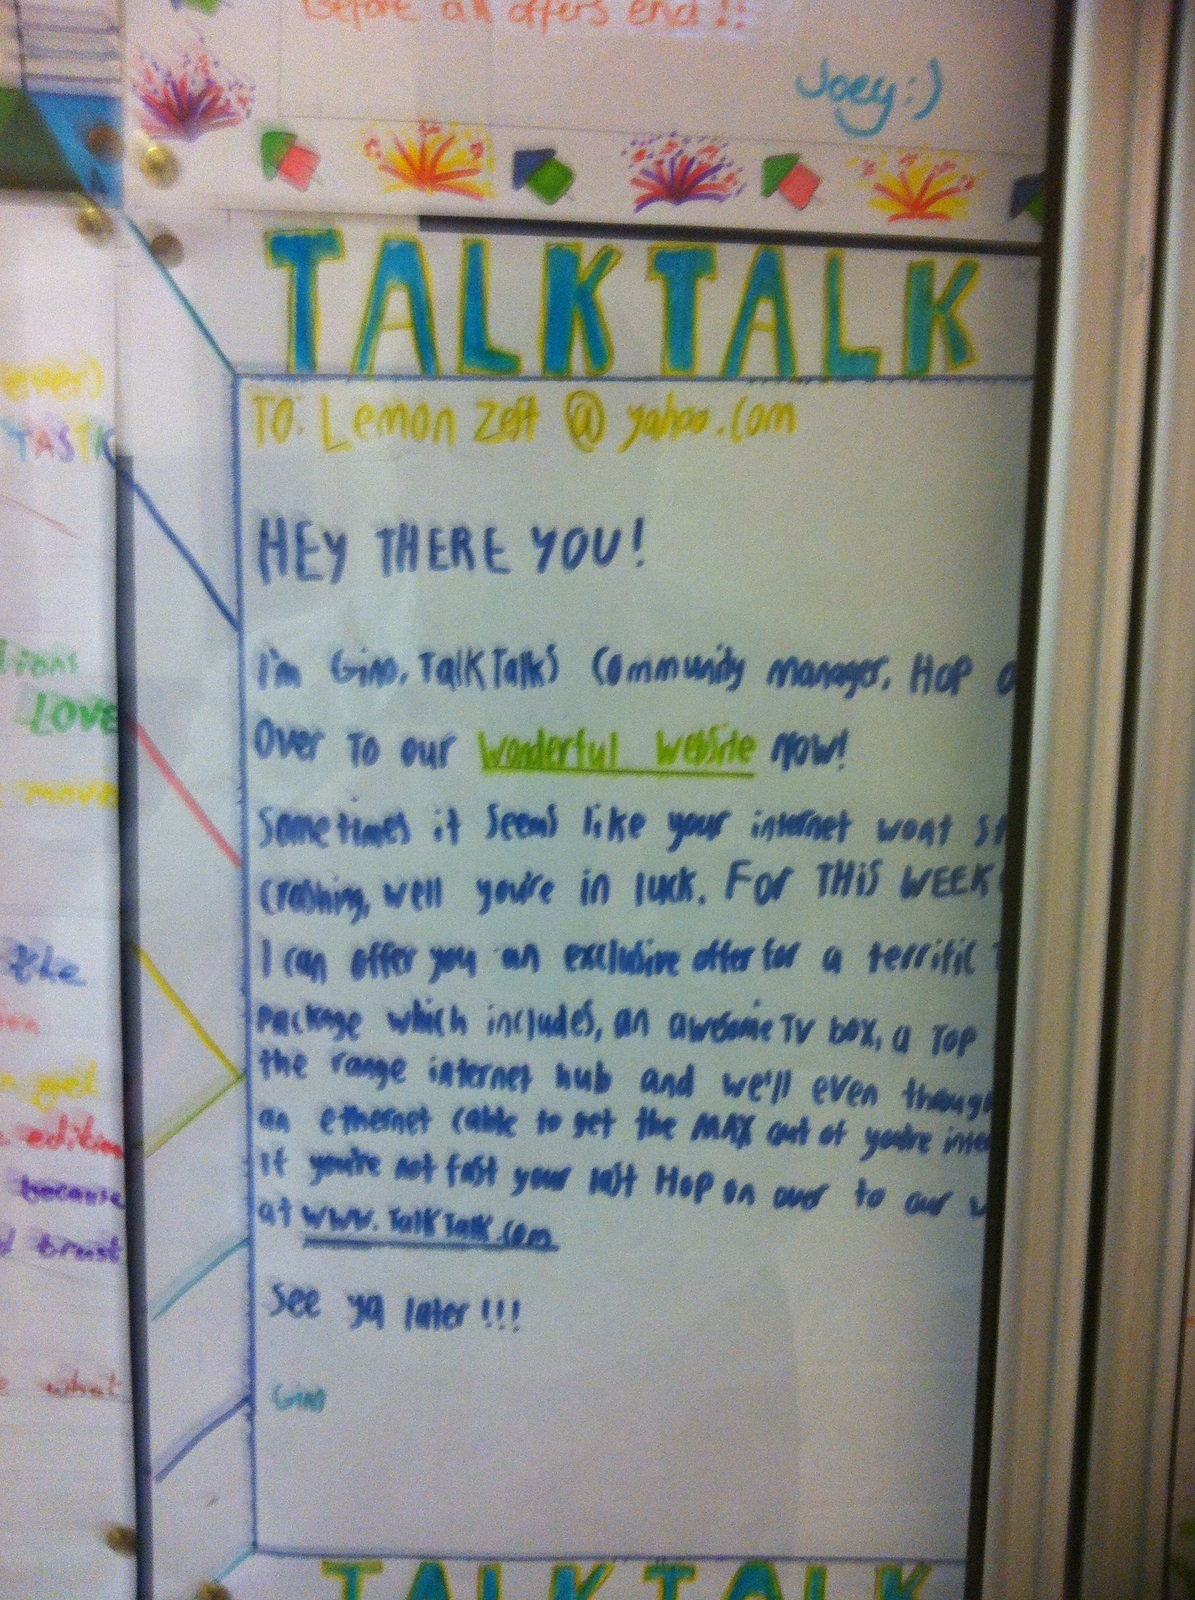 Before all offers end!!
Joey:)
TALKTALK
To: Lemon Zest @ yahoo.com
HEY THERE YOU!
I'm Gino, TalkTalks Community manager. Hop o
over to our wonderful website now!
Sometimes it seems like your internet wont st
crashing, well you're in luck. FOR THIS WEEK
I can offer you an exclusive offer for a terrific
package which includes, an awesome TV box, a Top
the range internet hub and we'll even
an ethernet cable to get the MAX out of you're inte
if you're not fast your last Hop on over to our w
at www.TalkTalk.com
See ya later!!!
Gino
TALKTALK
ever)
TASTIC
LOVE
move
the
get
edition
because
trust
what